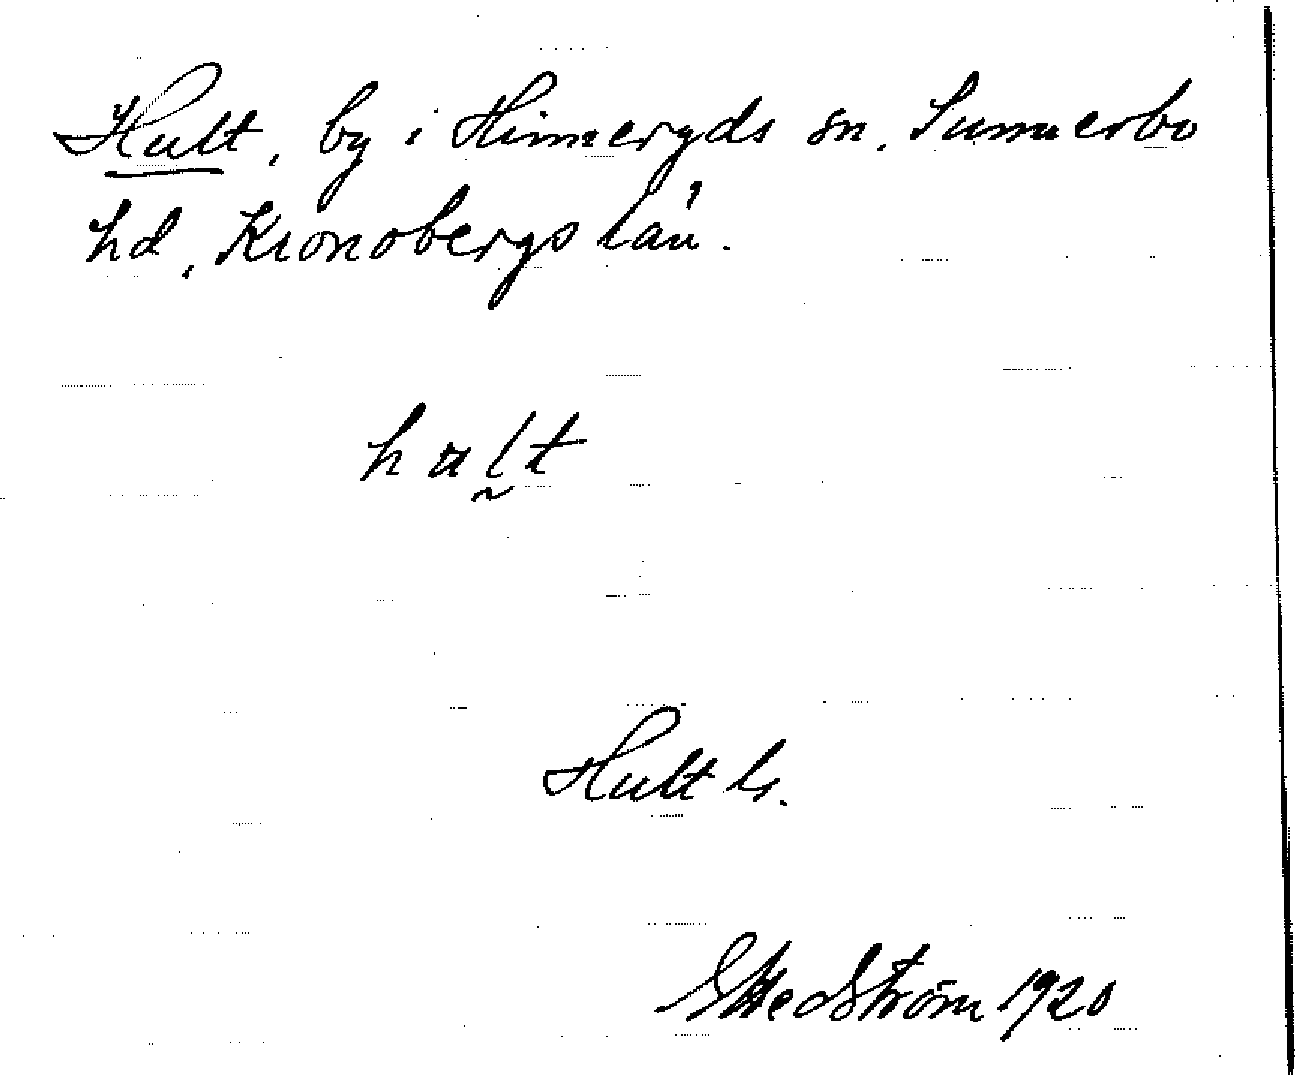 Hult, by i Hinneryds sn, Sunnerbo
hd, Kronobergs län.
halt
Hult ks.
G Hedström 1920